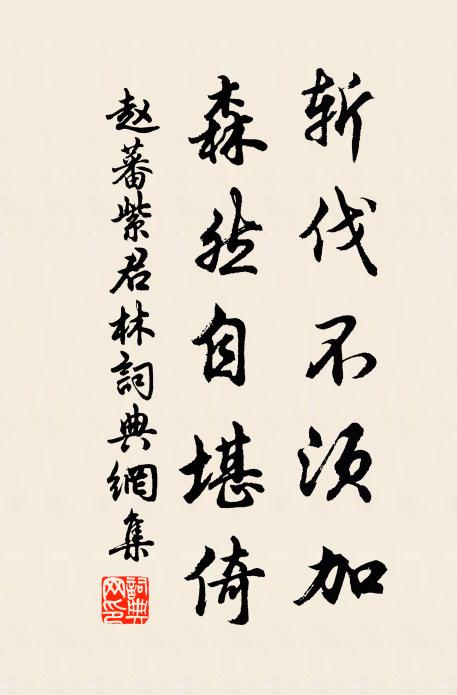 斩伐不须加
森然自堪倚
赵蕃紫君林詞典網集
詞典网印